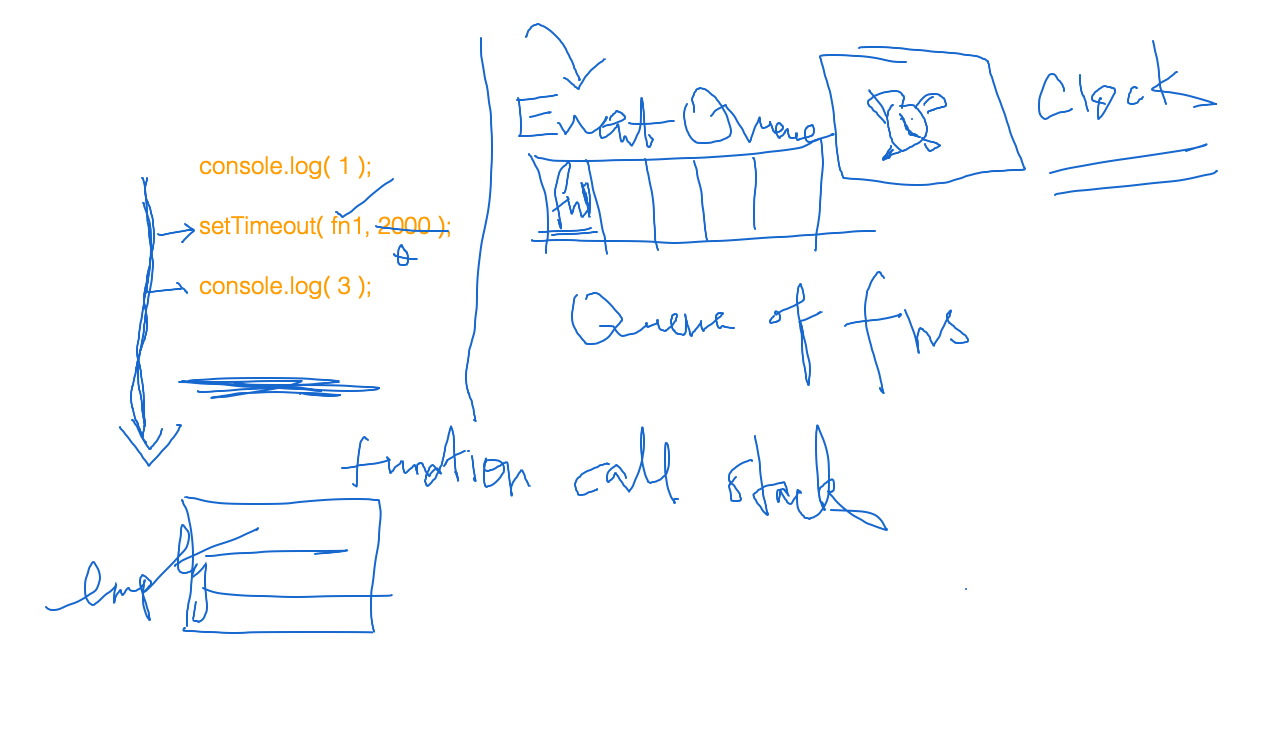 console.log( 1 );
setTimeout( fn1, 2000 );
0
console.log( 3 );
Event Queue
Clock
fn1
Queue of fns
function call stack
empty